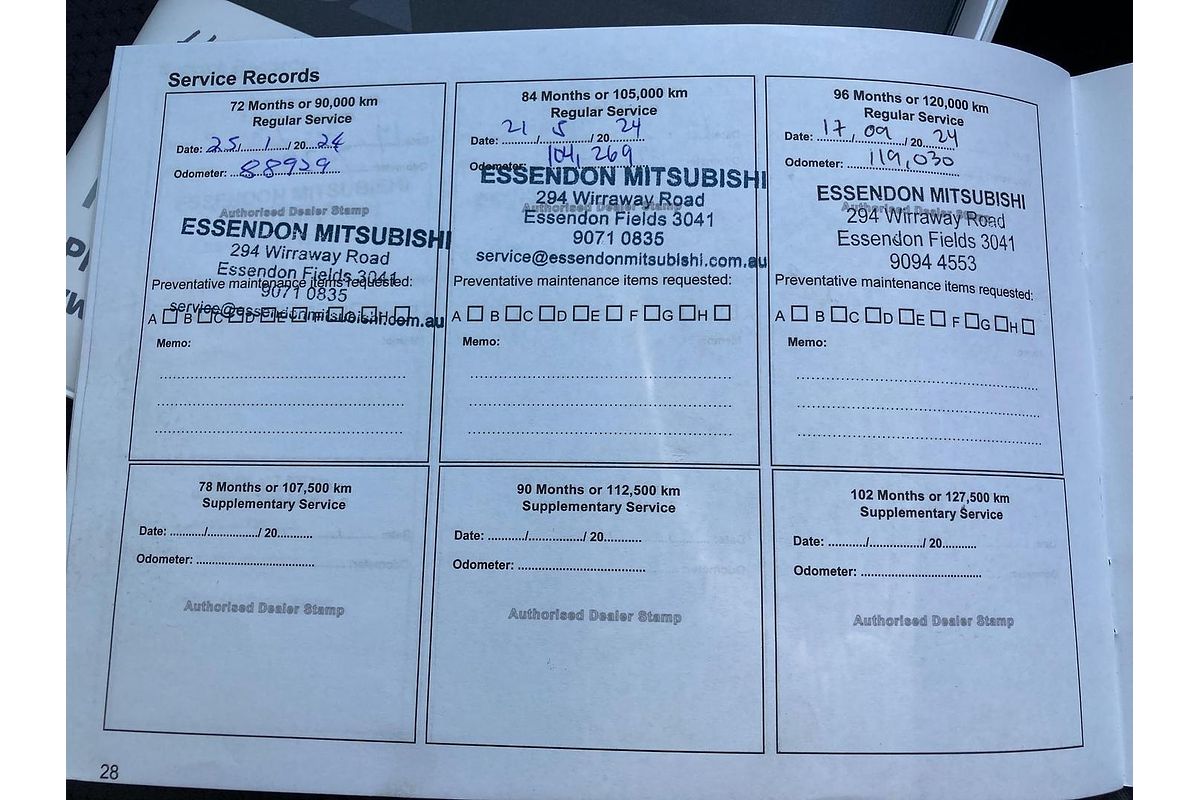 Service Records
72 Months or 90,000 km
Regular Service
Date: 25/1/2024
Odometer: 88929
Authorised Dealer Stamp
ESSENDON MITSUBISHI
294 Wirraway Road
Essendon Fields 3041
9071 0835
service@essendonmitsubishi.com.au
Preventative maintenance items requested:
A B C D E F G H
Memo:
84 Months or 105,000 km
Regular Service
Date: 21/5/2024
Odometer: 104,269
Authorised Dealer Stamp
ESSENDON MITSUBISHI
294 Wirraway Road
Essendon Fields 3041
9071 0835
service@essendonmitsubishi.com.au
Preventative maintenance items requested:
A B C D E F G H
Memo:
96 Months or 120,000 km
Regular Service
Date: 17/09/2024
Odometer: 119,030
Authorised Dealer Stamp
ESSENDON MITSUBISHI
294 Wirraway Road
Essendon Fields 3041
9094 4553
Preventative maintenance items requested:
A B C D E F G H
Memo:
78 Months or 107,500 km
Supplementary Service
Date: ........../................/ 20...........
Odometer: ...................................
Authorised Dealer Stamp
90 Months or 112,500 km
Supplementary Service
Date: .........../................./ 20...........
Odometer: ......................................
Authorised Dealer Stamp
102 Months or 127,500 km
Supplementary Service
Date: .........../................/ 20..........
Odometer: ...................................
Authorised Dealer Stamp
28